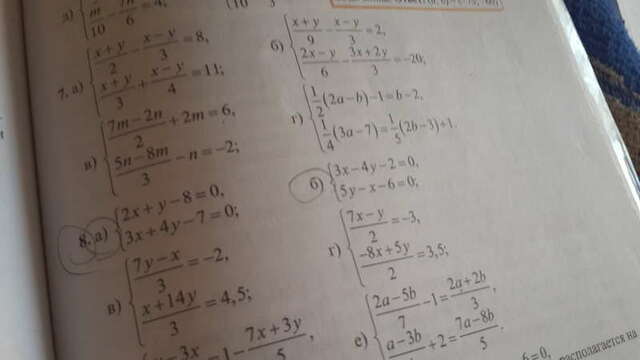 7. а) { (x+y)/2 − (x−y)/3 = 8,
(x+y)/3 + (x−y)/4 = 11;
б) { (x+y)/9 − (x−y)/3 = 2,
(2x−y)/6 − (3x+2y)/3 = −20;
в) { (7m−2n)/2 + 2m = 6,
(5n−8m)/3 − n = −2;
г) { 1/2(2a−b)−1=b−2,
1/4(3a−7)=1/5(2b−3)+1.
8. а) { 2x+y−8=0,
3x+4y−7=0;
б) { 3x−4y−2=0,
5y−x−6=0;
в) { (7y−x)/3 = −2,
(x+14y)/3 = 4,5;
г) { (7x−y)/2 = −3,
(−8x+5y)/2 = 3,5;
7x+3y
е) { (2a−5b)/7 − 1 = (2a+2b)/3,
a−3b +2 = (7a−8b)/5.
располагается на